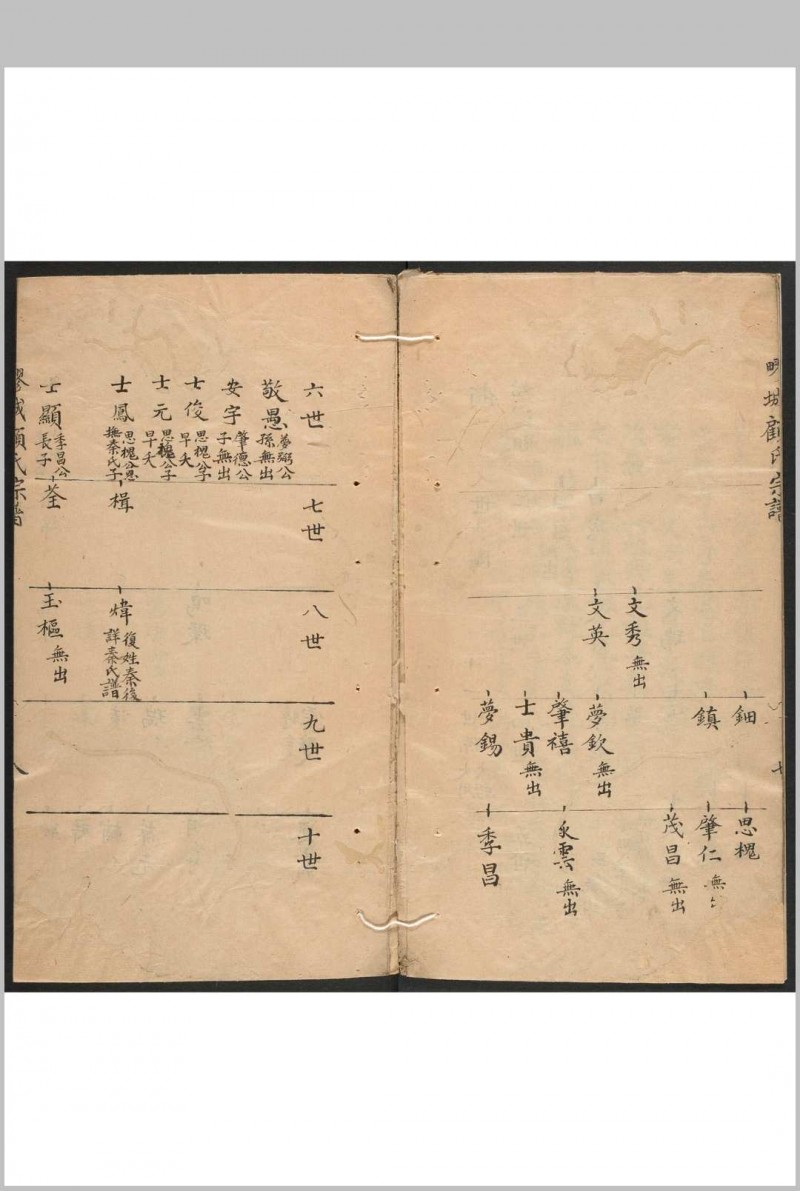 城顧氏宗譜
七
文秀 無出
文英
鈿
鎮
夢欽 無出
肇禧
士貴 無出
夢錫
思槐
肇仁 無
茂昌 無出
永雲 無出
季昌
六世
敬愚 夢弼公孫無出
安宇 肇德公子無出
士俊 思槐公子早夭
士元 思槐公子早夭
士鳳 思槐公恩撫秦氏子
士顯 季昌公長子
七世
楫
荃
八世
煒 復姓秦後詳秦氏譜
玉樞 無出
九世
十世
城顧氏宗譜
八